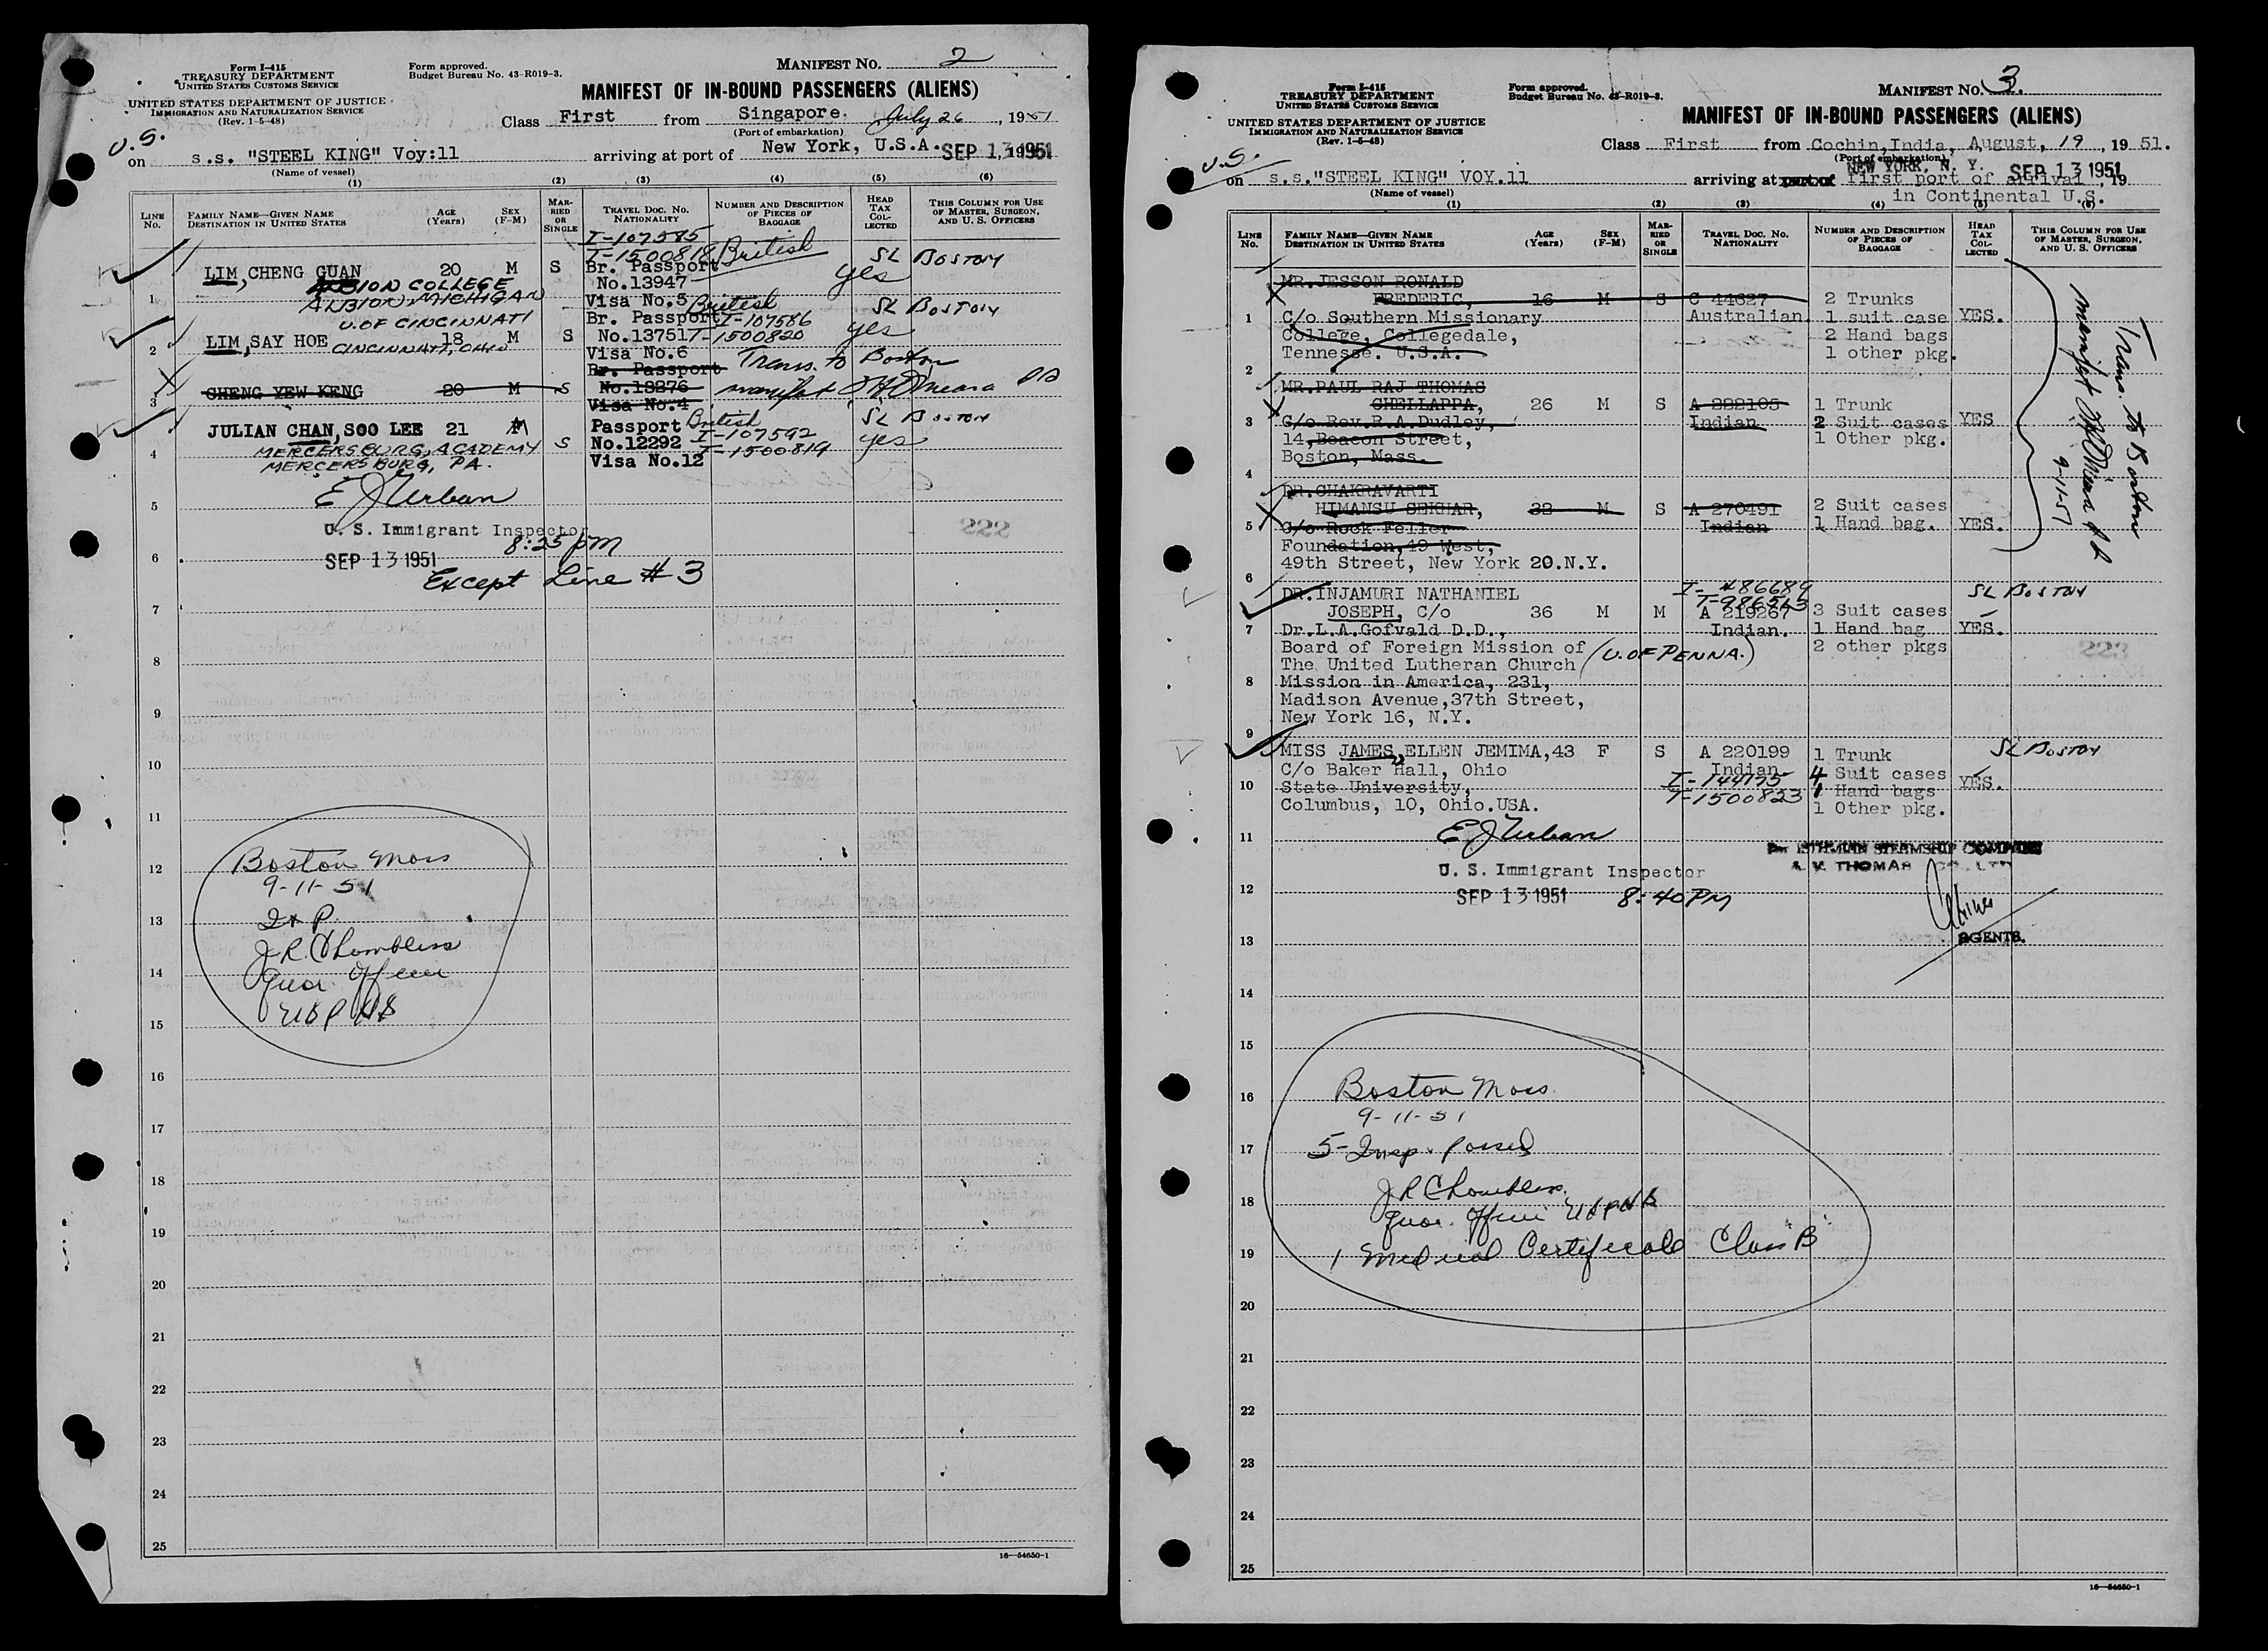 Form I-415
TREASURY DEPARTMENT
UNITED STATES CUSTOMS SERVICE
UNITED STATES DEPARTMENT OF JUSTICE
IMMIGRATION AND NATURALIZATION SERVICE
(Rev. 1-5-48)
Form approved.
Budget Bureau No. 43-R019-3.
MANIFEST NO. 2
MANIFEST OF IN-BOUND PASSENGERS (ALIENS)
Class First from Singapore. July 26, 1951
(Port of embarkation)
U.S.
on s.s. "STEEL KING" Voy:11 arriving at port of New York, U.S.A. SEP 13 1951
(Name of vessel)
(1) (2) (3) (4) (5) (6)
LINE No. FAMILY NAME—GIVEN NAME DESTINATION IN UNITED STATES AGE (Years) SEX (F-M) MARRIED OR SINGLE TRAVEL DOC. NO. NATIONALITY NUMBER AND DESCRIPTION OF PIECES OF BAGGAGE HEAD TAX COLLECTED THIS COLUMN FOR USE OF MASTER, SURGEON, AND U. S. OFFICERS
I-107585
T-1500818 British
1 LIM, CHENG GUAN 20 M S Br. Passport No.13947 Visa No.5 yes SL BOSTON
ALBION COLLEGE
ALBION, MICHIGAN
U. OF CINCINNATI
2 LIM, SAY HOE 18 M S Br. Passport No.13751 Visa No.6 British I-107586 T-1500820 yes SL BOSTON
CINCINNATI, OHIO
3 CHENG YEW KENG 20 M S Br. Passport No.13276 Visa No.4 Trans. to Boston manifest
4 JULIAN CHAN, SOO LEE 21 M S Passport No.12292 Visa No.12 British I-107592 T-1500819 yes SL BOSTON
MERCERSBURG, ACADEMY
MERCERSBURG, PA.
E J Urban
5
U. S. Immigrant Inspector
8:25 PM
6 SEP 13 1951
Except Line # 3
222
7
8
9
10
11
12 Boston Mass
9-11-51
13 I & P
J.R. Chambliss
14 Quar. Officer
USPHS
15
16
17
18
19
20
21
22
23
24
25
16—54650-1
Form I-415
TREASURY DEPARTMENT
UNITED STATES CUSTOMS SERVICE
UNITED STATES DEPARTMENT OF JUSTICE
IMMIGRATION AND NATURALIZATION SERVICE
(Rev. 1-5-48)
Form approved.
Budget Bureau No. 43-R019-3.
MANIFEST NO. 3.
MANIFEST OF IN-BOUND PASSENGERS (ALIENS)
Class First from Cochin, India, August, 19, 1951.
(Port of embarkation)
U.S.
NEW YORK, N. Y. SEP 13 1951
on s.s."STEEL KING" VOY.11 arriving at port of first port of arrival, 19
in Continental U.S.
(Name of vessel)
(1) (2) (3) (4) (5) (6)
LINE No. FAMILY NAME—GIVEN NAME DESTINATION IN UNITED STATES AGE (Years) SEX (F-M) MARRIED OR SINGLE TRAVEL DOC. NO. NATIONALITY NUMBER AND DESCRIPTION OF PIECES OF BAGGAGE HEAD TAX COLLECTED THIS COLUMN FOR USE OF MASTER, SURGEON, AND U. S. OFFICERS
MR.JESSON RONALD
FREDERIC, 16 M S C 44627 2 Trunks
1 C/o Southern Missionary Australian. 1 suit case YES.
College, Collegedale, 2 Hand bags
Tennesse. U.S.A. 1 other pkg.
2
MR.PAUL RAJ THOMAS
CHELLAPPA, 26 M S A 222105 1 Trunk
3 C/o Rev.R.A.Dudley, Indian 2 Suit cases YES
14,Beacon Street, 1 Other pkg.
Boston, Mass.
Trans. to Boston
manifest
9-11-51
4
DR.CHAKRAVARTI
HIMANSU SEKHAR, 32 M S A 270491 2 Suit cases
5 C/o Rock Feller Indian 1 Hand bag. YES.
Foundation,49 West,
49th Street, New York 20.N.Y.
6
DR.INJAMURI NATHANIEL I-486689 SL BOSTON
T-986563
JOSEPH, C/o 36 M M A 219267 3 Suit cases
7 Dr.L.A.Gofvald D.D., Indian. 1 Hand bag YES.
Board of Foreign Mission of (U. OF PENNA.) 2 other pkgs
The United Lutheran Church
8 Mission in America, 231,
Madison Avenue,37th Street,
New York 16, N.Y.
223
9
MISS JAMES, ELLEN JEMIMA, 43 F S A 220199 1 Trunk SL BOSTON
C/o Baker Hall, Ohio Indian 4 Suit cases
10 State University, I-144175 1 Hand bags YES.
Columbus, 10, Ohio.USA. T-1500823 1 Other pkg.
11 E J Urban
U. S. Immigrant Inspector
12 SEP 13 1951 8:40 PM
ISTHMIAN STEAMSHIP COMPANY
A. V. THOMAS CO. LTD
AGENTS.
13
14
15
16 Boston Mass.
9-11-51
17 5- Insp. passed
J R Chambliss.
18 Quar. Officer USPHS
19 1 Medical Certificate Class "B"
20
21
22
23
24
25
16—54650-1